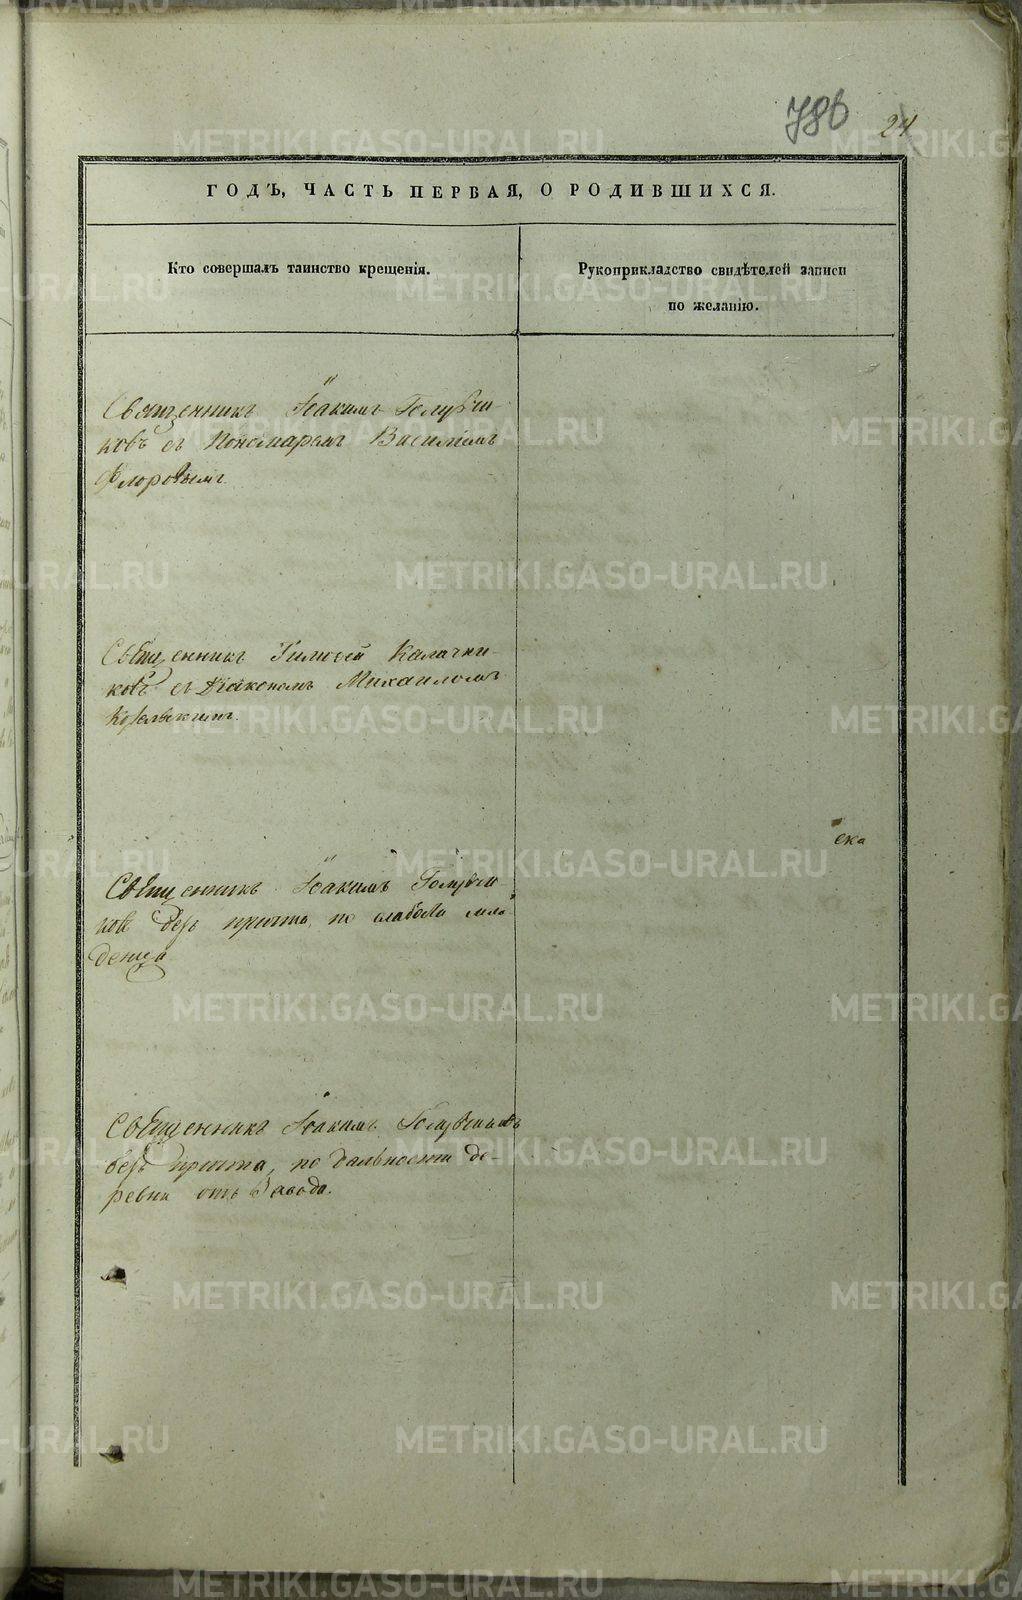 786 24
ГОДЪ, ЧАСТЬ ПЕРВАЯ, О РОДИВШИХСЯ.
Кто совершалъ таинство крещенія.
Рукоприкладство свидѣтелей записи
по желанію.
Священникъ Іоакимъ Голубчи-
ковъ съ Пономаремъ Василіемъ
Флоровымъ.
Священникъ Тимоѳей Калачни-
ковъ съ Діакономъ Михаиломъ
Священникъ Іоакимъ Голубчи
ковъ безъ причта, по слабости мла
денца
Священникъ Іоакимъ Голубчиковъ
безъ причта, по дальности де-
ревни отъ Завода.
METRIKI.GASO-URAL.RU